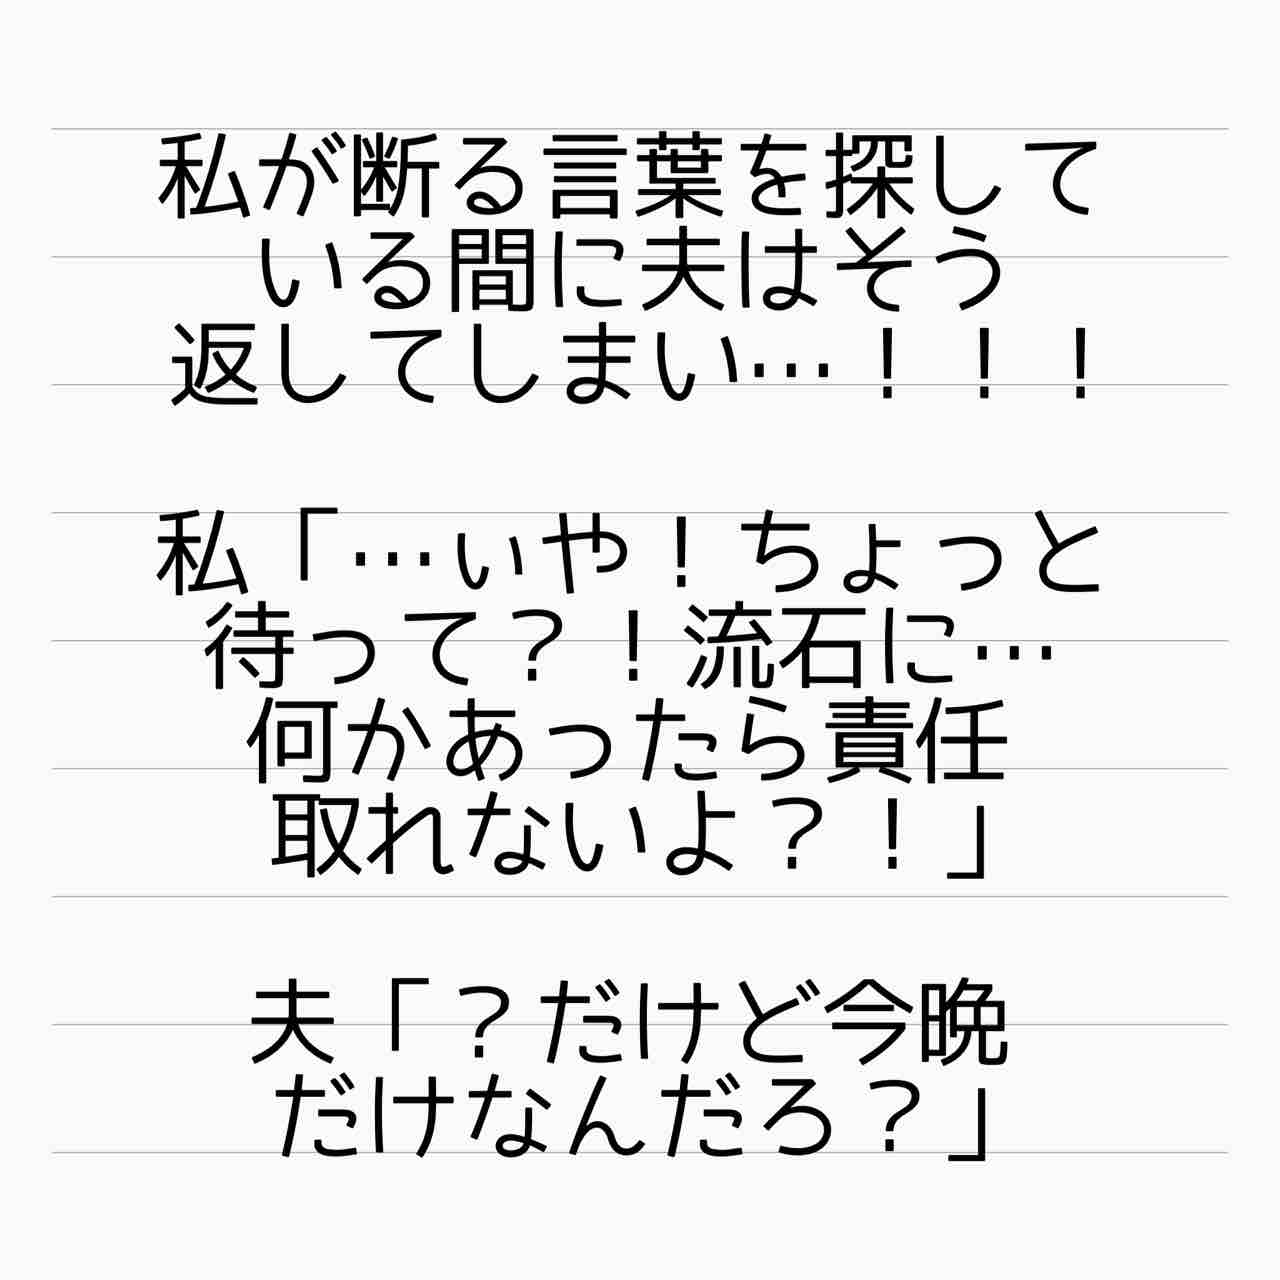 私が断る言葉を探して
いる間に夫はそう
返してしまい…！！！
私「…ぃや！ちょっと
待って？！流石に…
何かあったら責任
取れないよ？！」
夫「？だけど今晩
だけなんだろ？」